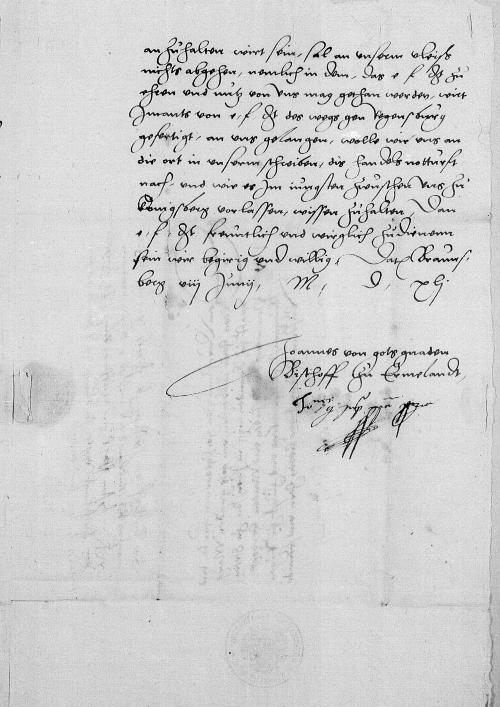 anzuhalten wirt sein, sal an unserm vleiss
nichts abgehen, nemlich in dem, das e f dt zu
ehren und nutz von uns mag gethan werden, wirt
imants von e, f dt des wegs gen Regenspurg
gefertigt, an uns gelangen, wolle wir uns an
die ort in unserm schreiben, des handels notturft
nach, und wie es im jungsten zwuschen uns zu
Königsberg vorlassen, wissen zuhalten, Dan
e, f, dt freuntlich und wirglich zudienenn
sein wir begirig und willig, Dat Brauns,
berg viij Junij, M, D, xlj
Joannes von gots gnaden
Bischoff zu Ermelandt,